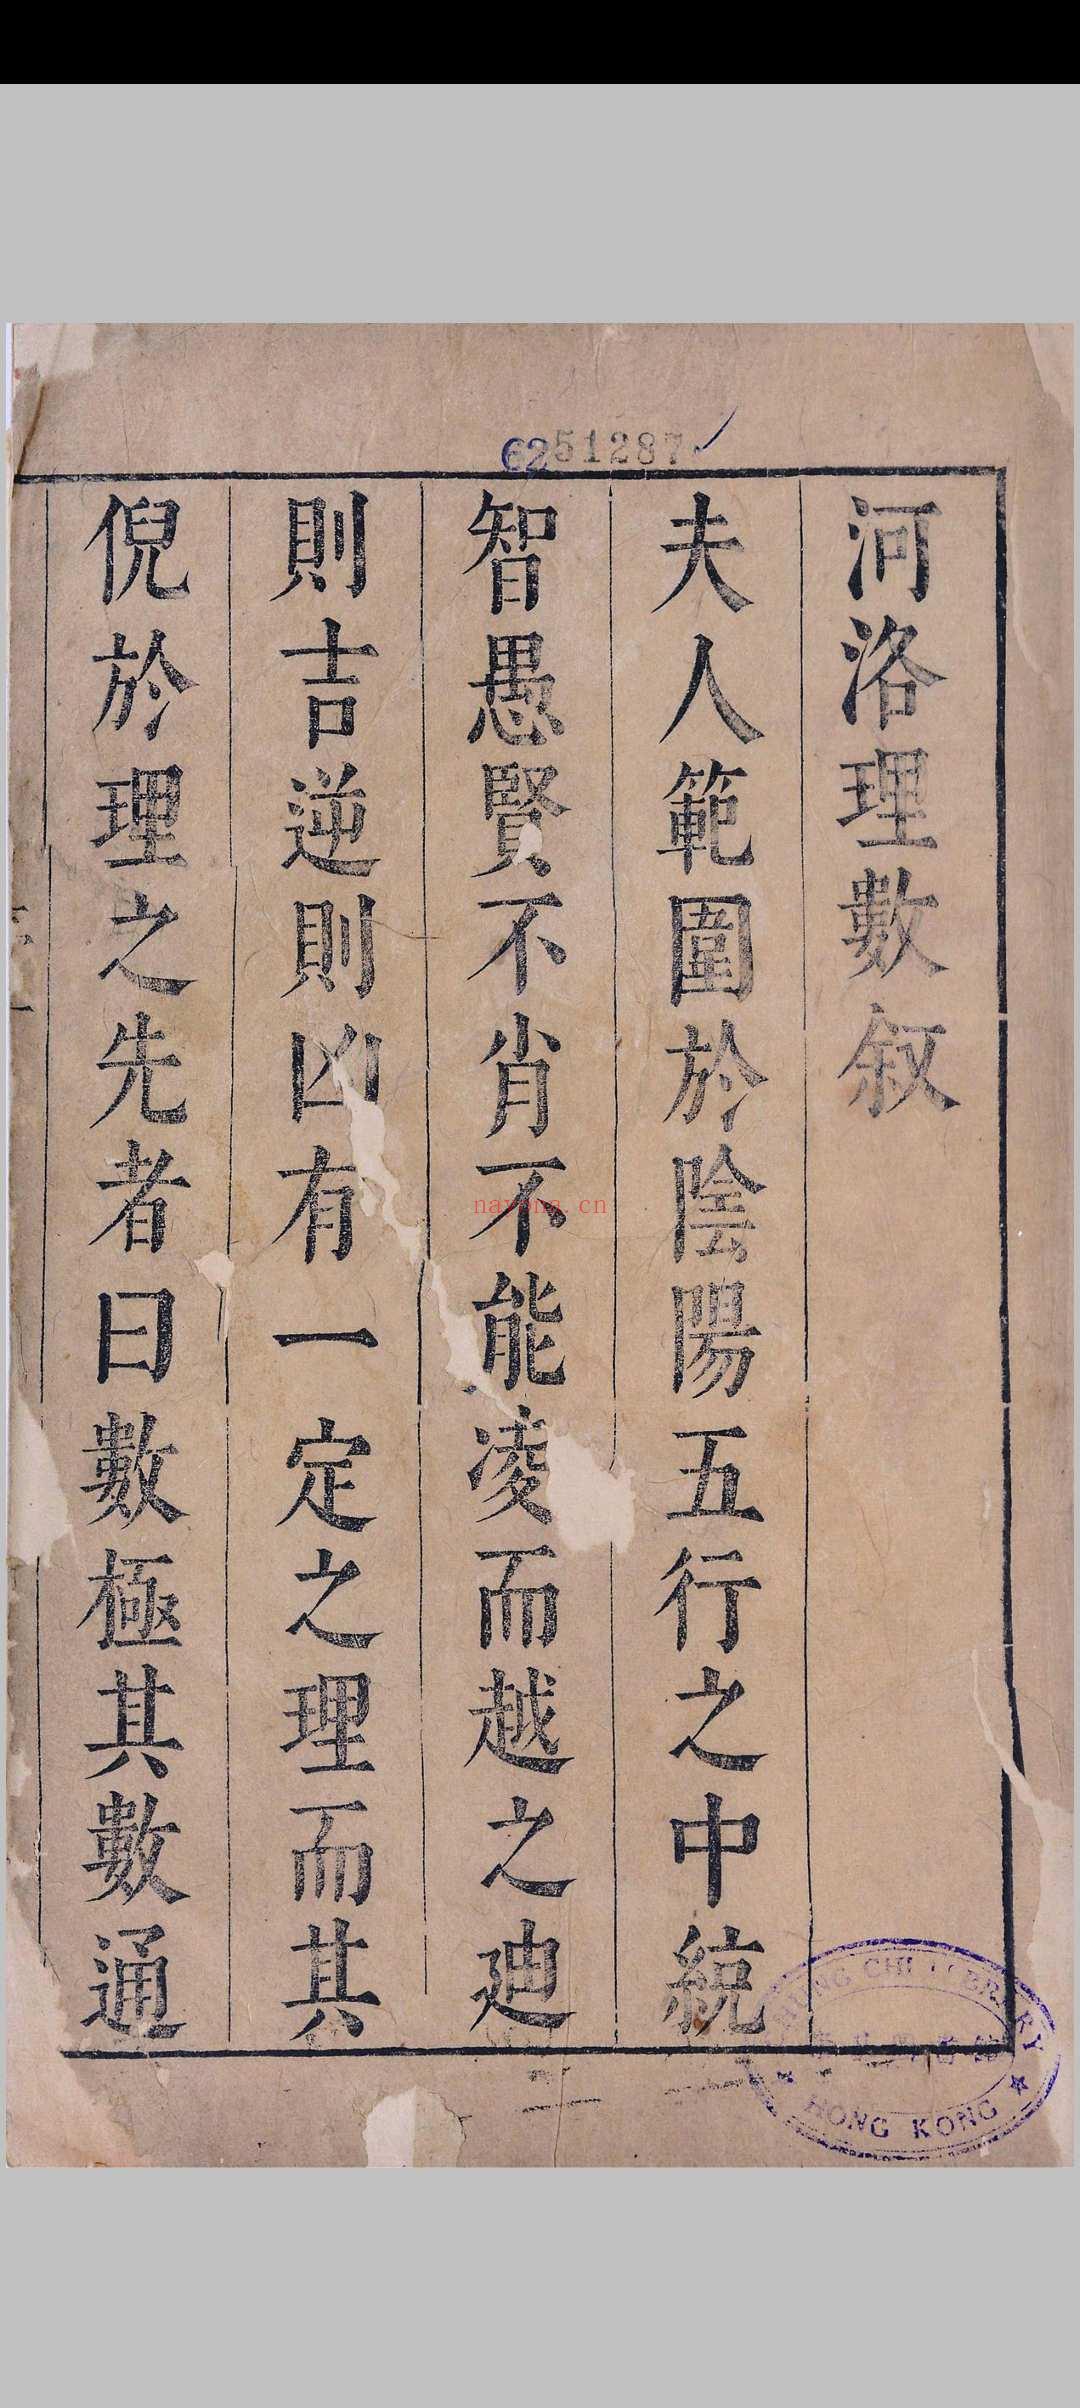 6251287
河洛理數叙
夫人範圍於陰陽五行之中統
智愚賢不肖不能凌而越之廸
則吉逆則凶有一定之理而其
倪於理之先者曰數極其數通
nayona.cn
HONG KONG